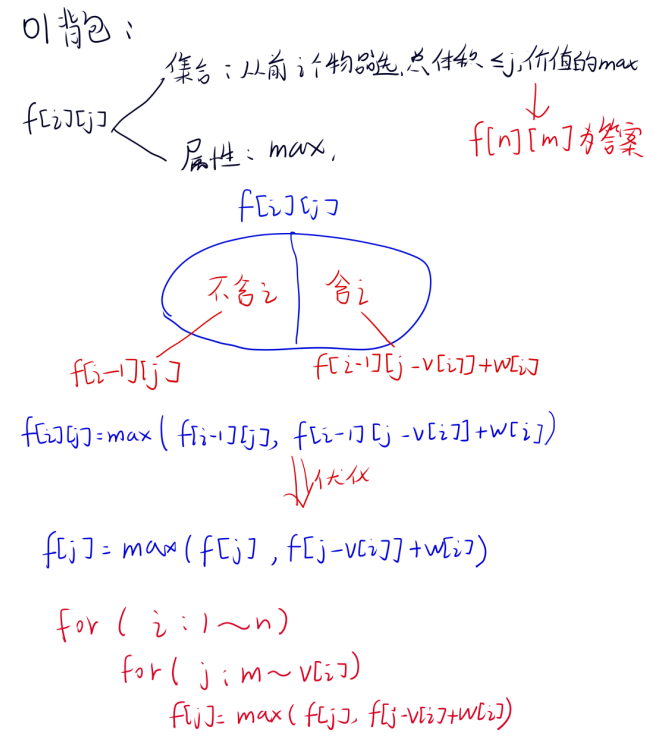 01背包：
集合：从前i个物品选,总体积≤j,价值的max
f[i][j]
属性：max,
f[n][m]为答案
f[i][j]
不含i
含i
f[i-1][j]
f[i-1][j-v[i]]+w[i]
f[i][j]=max(f[i-1][j], f[i-1][j-v[i]]+w[i])
优化
f[j]=max(f[j], f[j-v[i]]+w[i])
for(i:1~n)
for(j:m~v[i])
f[j]=max(f[j], f[j-v[i]+w[i])